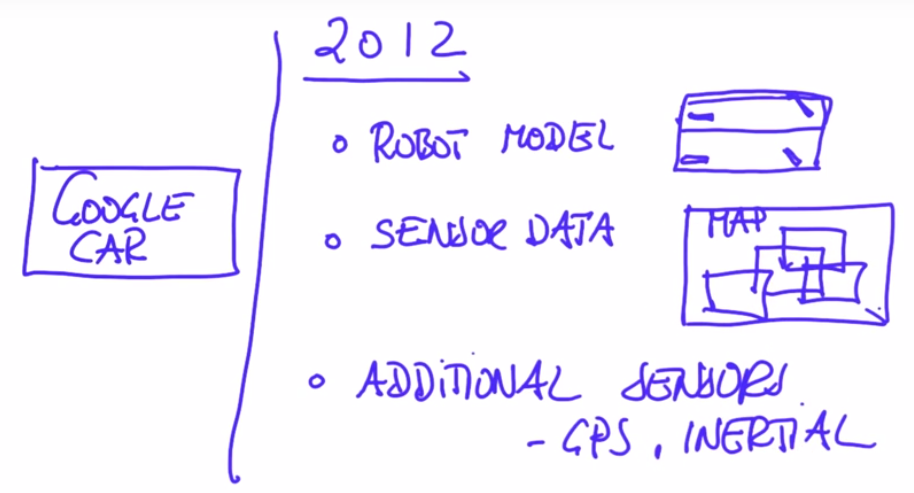 GOOGLE
CAR
2012
ROBOT MODEL
SENSOR DATA
MAP
ADDITIONAL SENSORS
- GPS, INERTIAL